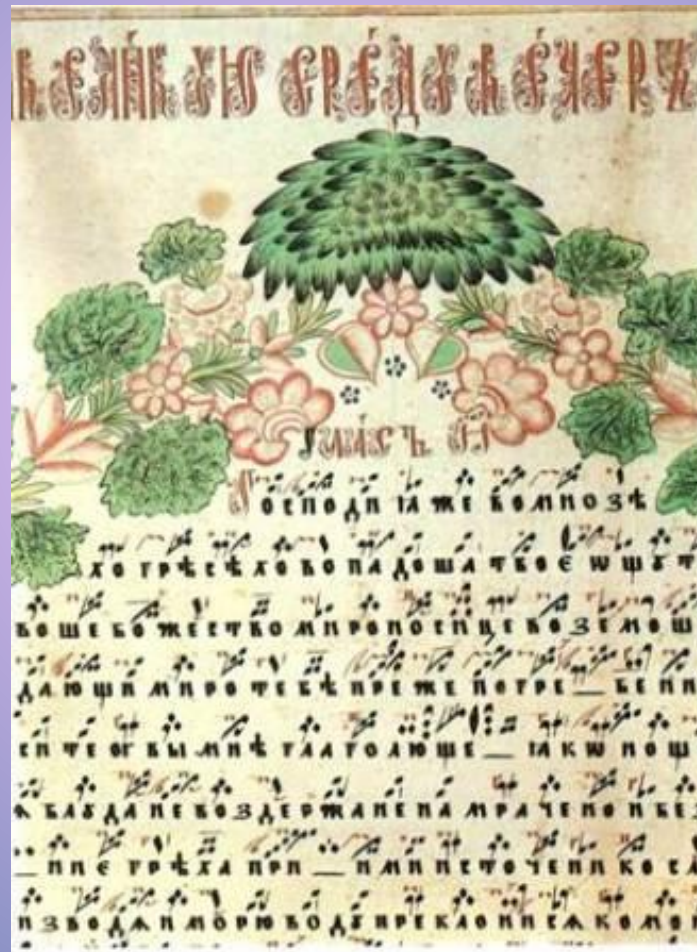 ВЕЛИ́КУЮ СРЕ́ДУ ВЕ́ЧЕРЪ
ГЛА́СЪ И҃
ГОСПОДИ ꙖЖЕ ВОМНОЗѢ
ХО ГРѢСѢХО ВОПАДОША ТВОЄ ѠЩꙊТ
ВОШЕ БОЖЕСТВО МИРОНОСИЦЕ ВОЗЕМОШ
ДАЮЩИ МИРО ТЕБѢ ПРЕЖЕ ПОГРЕ—БЕНИ
ВЫ МНѢ ГЛАГОЛЮЩЕ—ꙖКѠ НОЩ
БЛУДА НЕВОЗДЕРЖАНЕНА МРАЧЕНО И БЕ
—НИЄ ГРѢХА ПРИ—ИМИ ИСТОЧЕНИКО СЛ
ИЗВОДѦИ МОРЮ ВОДУ ПРЕКЛОНИСѦ КОМО